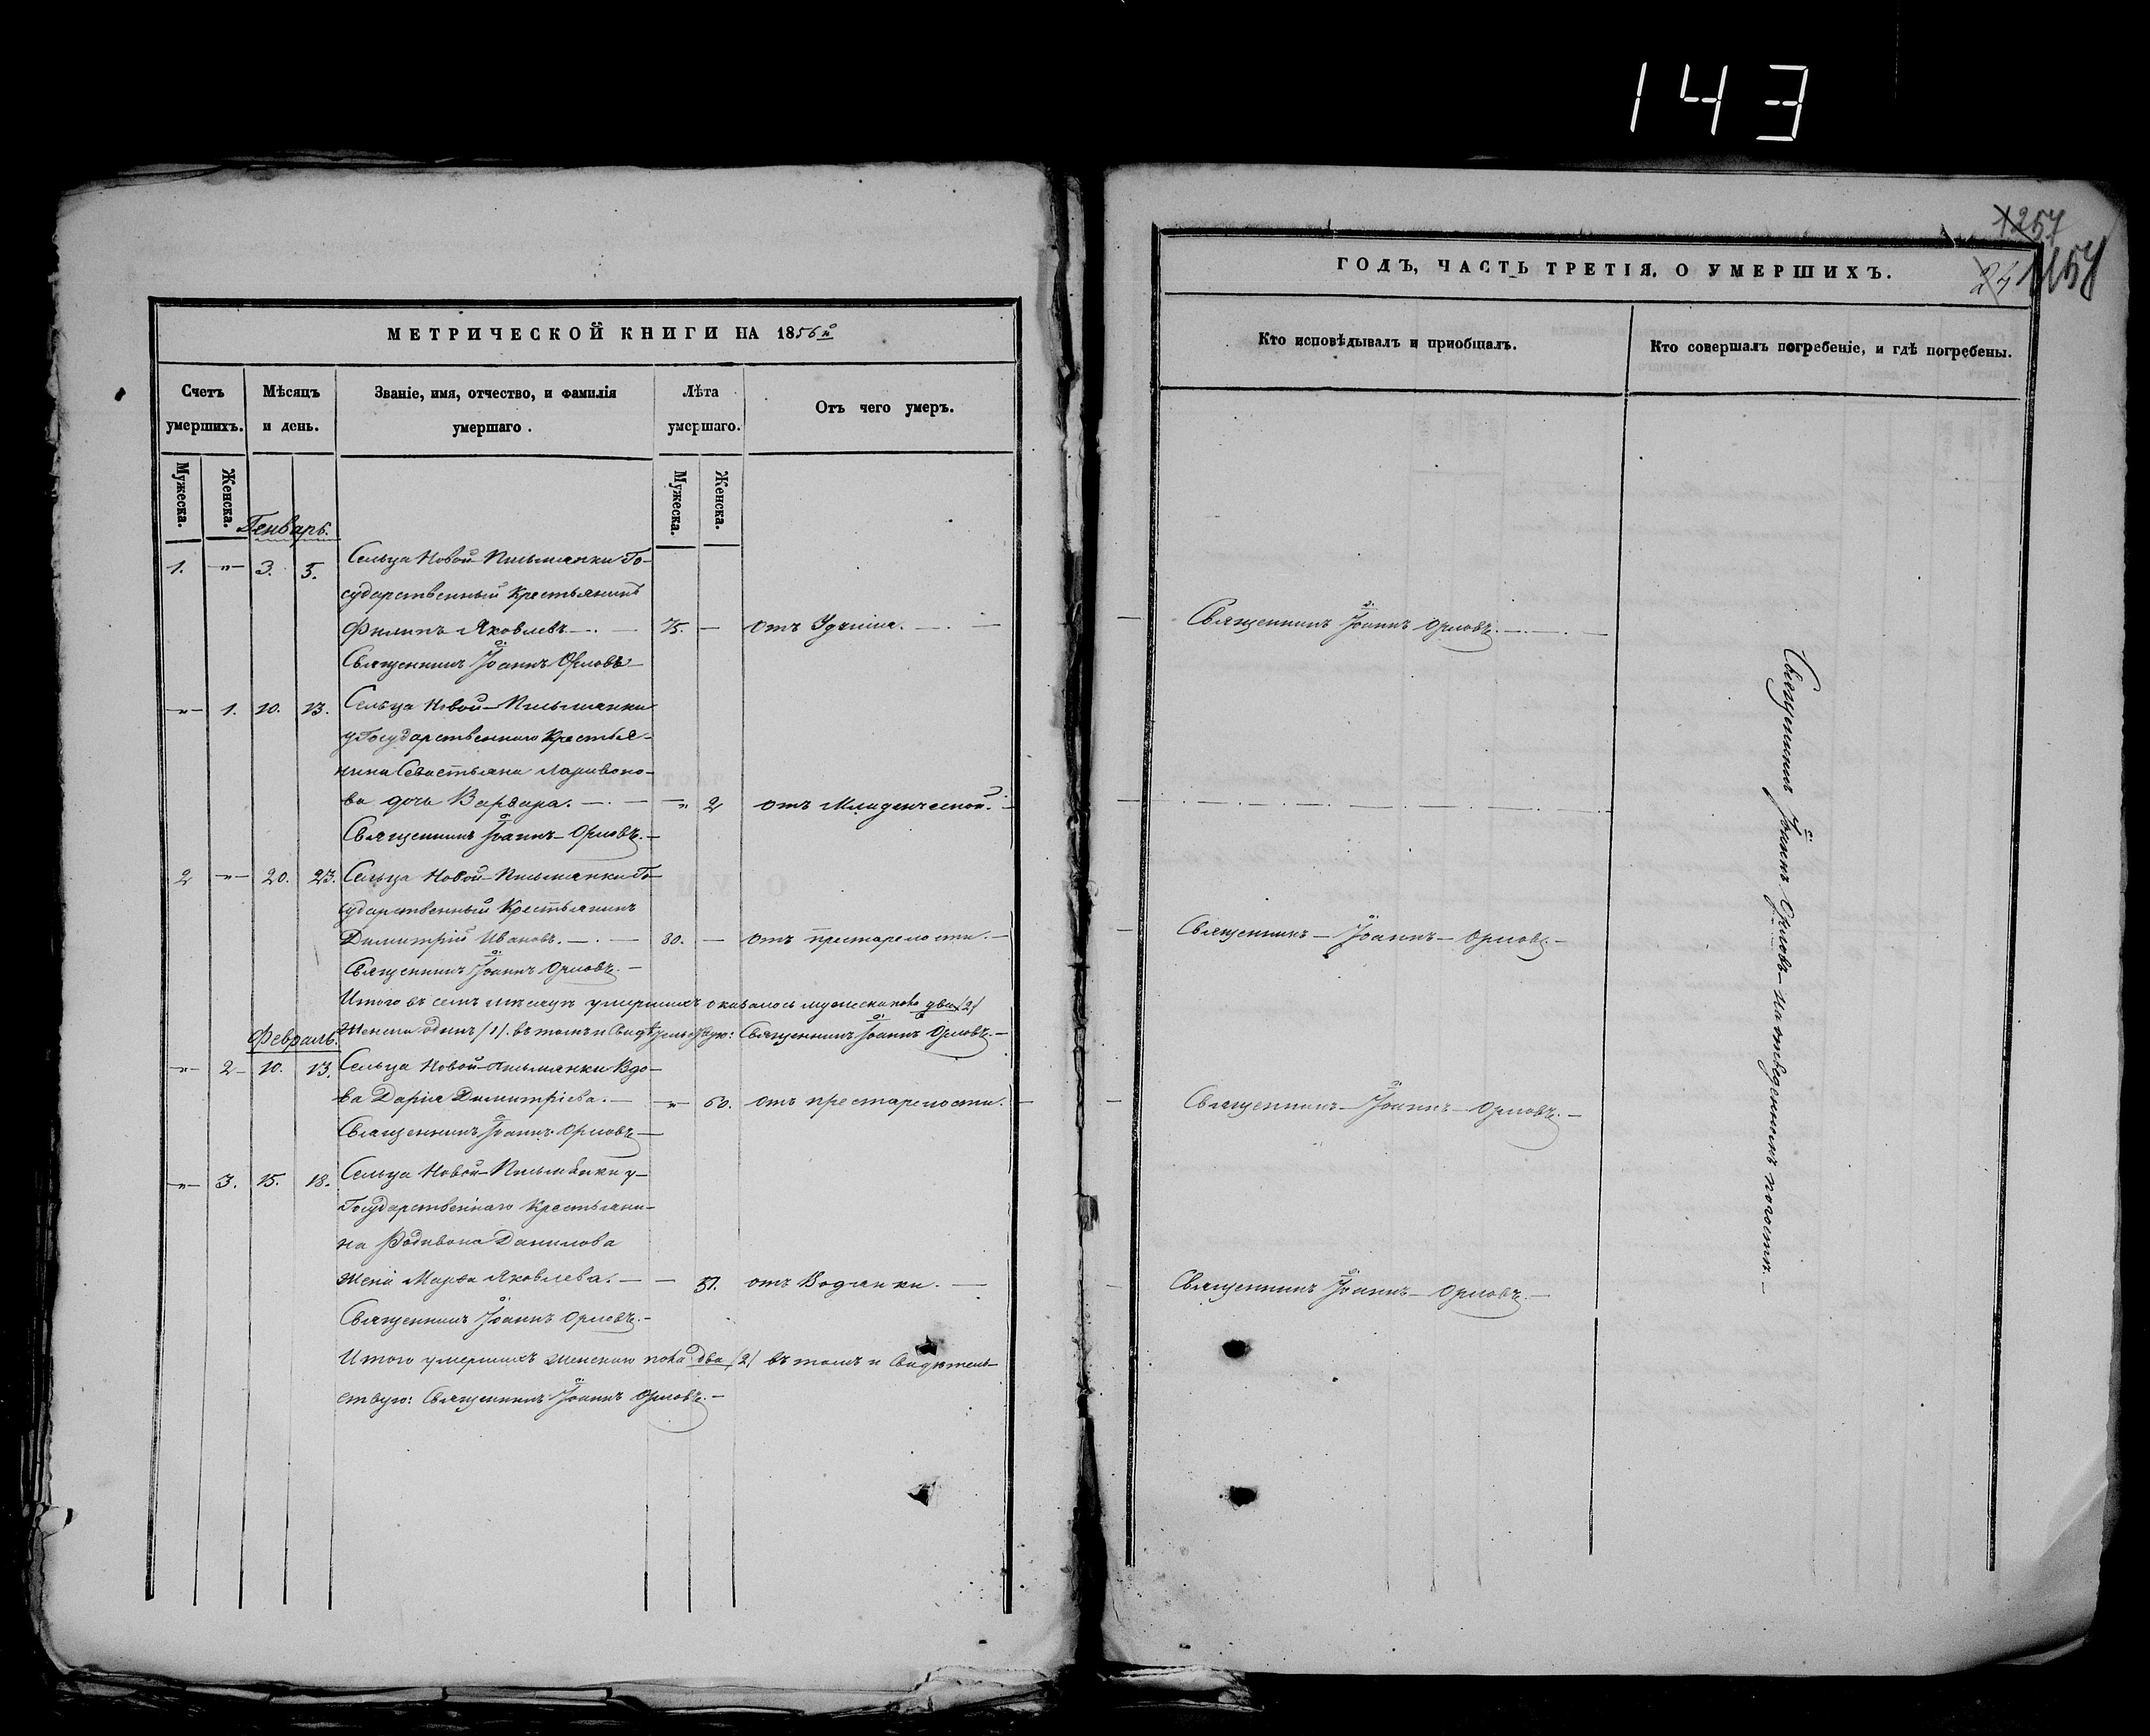 143
МЕТРИЧЕСКОЙ КНИГИ НА 1856й
Счетъ умершихъ.
Мужеска.
Женска.
Мѣсяцъ и день.
Званіе, имя, отчество, и фамилія умершаго.
Лѣта умершаго.
Мужеска.
Женска.
Отъ чего умеръ.
Генварь.
1. -"- 3. 5. Сельца Новой-Письмянки Го-
сударственный Крестьянинъ
Филипъ Яковлевъ.—.— 75. — отъ Удушья.—.—
Священникъ Іоаннъ Орловъ.—
-"- 1. 10. 13. Сельца Новой-Письмянки
у Государственнаго Крестья-
нина Севастьяна Ларивоно-
ва дочь Варвара.—.— " 2 отъ Младенческой.—
Священникъ Іоаннъ Орловъ.—
2 -"- 20. 23. Сельца Новой-Письмянки Го-
сударственный Крестьянинъ
Димитрій Ивановъ.—.— 80. — отъ престарелости.—
Священникъ Іоаннъ Орловъ.—
Итого въ семъ мѣсяцѣ умершихъ оказалось мужеска пола два /2/
женска одинъ /1/. въ томъ и Свидѣтельствую: Священникъ Іоаннъ Орловъ.—
Февраль.
-"- 2 10. 13. Сельца Новой-Письмянки Вдо-
ва Дарія Димитріева.— -"- 60. отъ престарелости.—
Священникъ Іоаннъ Орловъ.—
-"- 3. 15. 18. Сельца Новой-Письмянки у
Государственнаго Крестьяни-
на Родивона Данилова
жена Марфа Яковлева.— — 51. отъ Водянки.—
Священникъ Іоаннъ Орловъ.—
Итого умершихъ женскаго пола два /2/ въ томъ и Свидѣтель-
ствую: Священникъ Іоаннъ Орловъ.—
1257
24
ГОДЪ, ЧАСТЬ ТРЕТІЯ. О УМЕРШИХЪ.
Кто исповѣдывалъ и приобщалъ.
Кто совершалъ погребеніе, и гдѣ погребены.
Священникъ Іоаннъ Орловъ.—.—
Священникъ—Іоаннъ—Орловъ.—
Священникъ—Іоаннъ—Орловъ.—
Священникъ Іоаннъ—Орловъ.—
Священникъ Іоаннъ Орловъ—на отведенномъ погостѣ.—